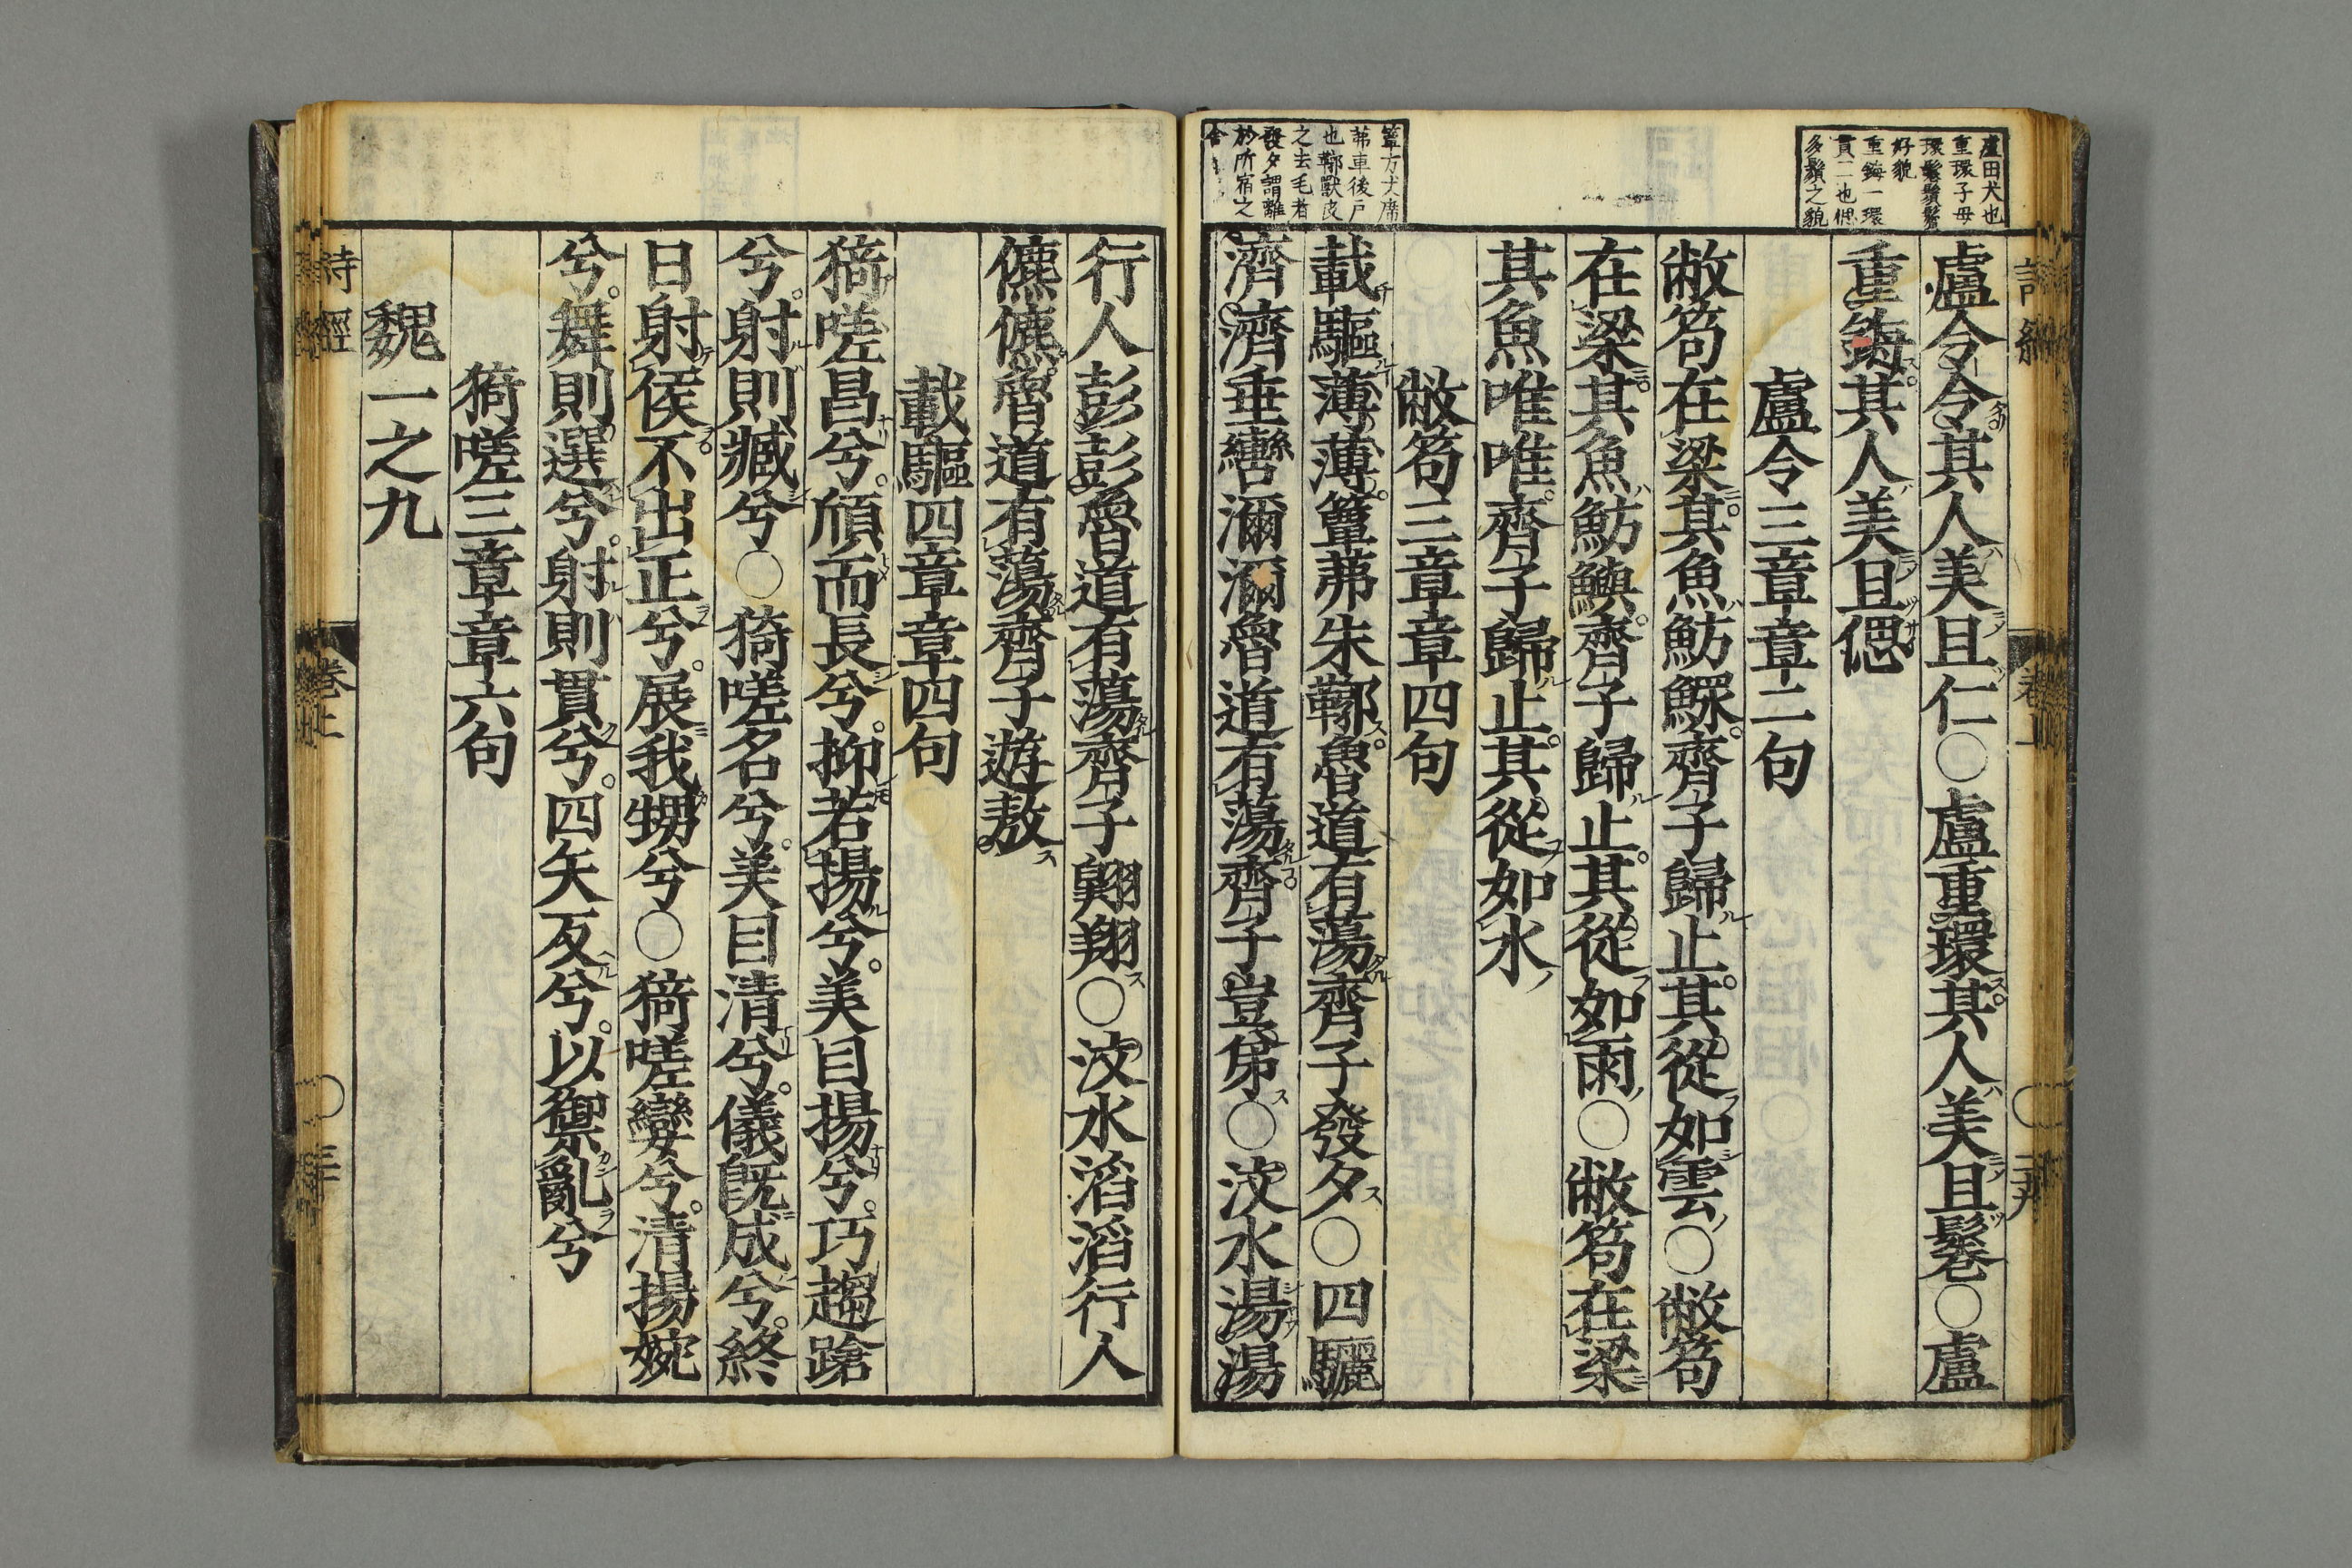 盧田犬也
重環子母
環鬈鬚鬢
好貌
重鋂一環
貫二也偲
多鬚之貌
盧令令其人美且仁○盧重環其人美且鬈○盧
重鋂其人美且偲
盧令三章章二句
敝笱在梁其魚魴鰥齊子歸止其從如雲○敝笱
在梁其魚魴鱮齊子歸止其從如雨○敝笱在梁
其魚唯唯齊子歸止其從如水
敝笱三章章四句
簟方文席
茀車後戶
也鞹獸皮
之去毛者
發夕謂離
於所宿之
舍
載驅薄薄簟茀朱鞹魯道有蕩齊子發夕○四驪
濟濟垂轡濔濔魯道有蕩齊子豈弟○汶水湯湯
行人彭彭魯道有蕩齊子翺翔○汶水滔滔行人
儦儦魯道有蕩齊子遊敖
載驅四章章四句
猗嗟昌兮頎而長兮抑若揚兮美目揚兮巧趨蹌
兮射則臧兮○猗嗟名兮美目清兮儀既成兮終
日射侯不出正兮展我甥兮○猗嗟孌兮清揚婉
兮舞則選兮射則貫兮四矢反兮以禦亂兮
猗嗟三章章六句
魏一之九
詩經 卷上